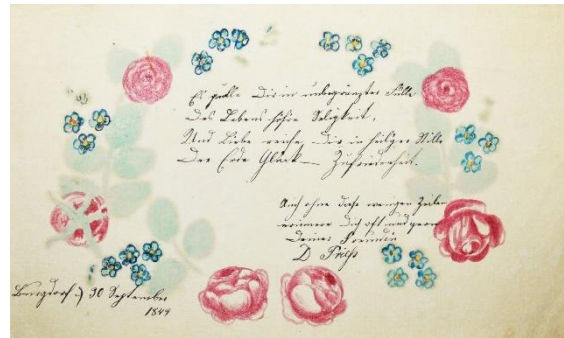 Es quelle Dir in unbegränzter Fülle
Des Lebens hohe Seligkeit,
Und Liebe reiche Dir in heilger Stille
Der Erde Glück — Zufriedenheit.
Auch ohne diese wenigen Zeilen
erinnere Dich oft und gern
Deiner Freundin
D
Burgdorf d 30 September
1849